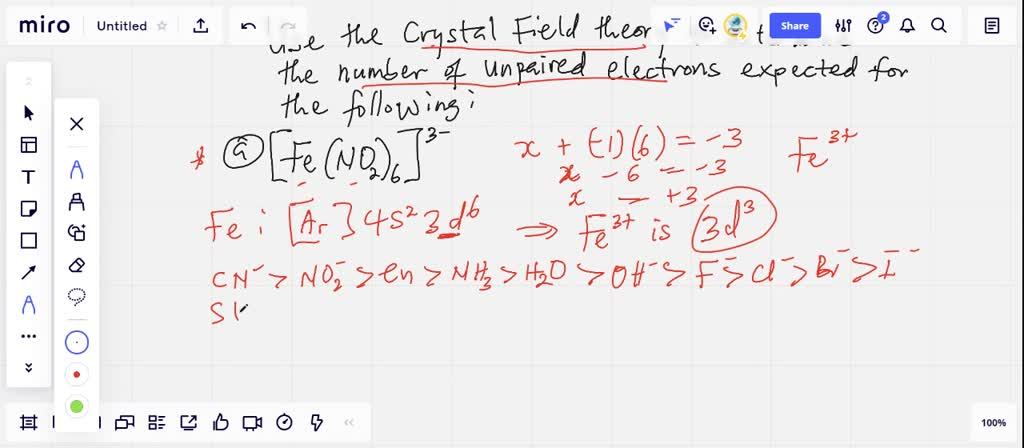 miro Untitled Share 2
use the Crystal Field theory
the number of unpaired electrons expected for
the following:
* ⓐ [Fe(NO₂)₆]³⁻ x + (-1)(6) = -3 Fe³⁺
x - 6 = -3
x = +3
Fe : [Ar] 4S² 3d⁶ ⇒ Fe³⁺ is 3d³
CN⁻ > NO₂⁻ > en > NH₃ > H₂O > OH⁻ > F⁻ > Cl⁻ > Br⁻ > I⁻
100%